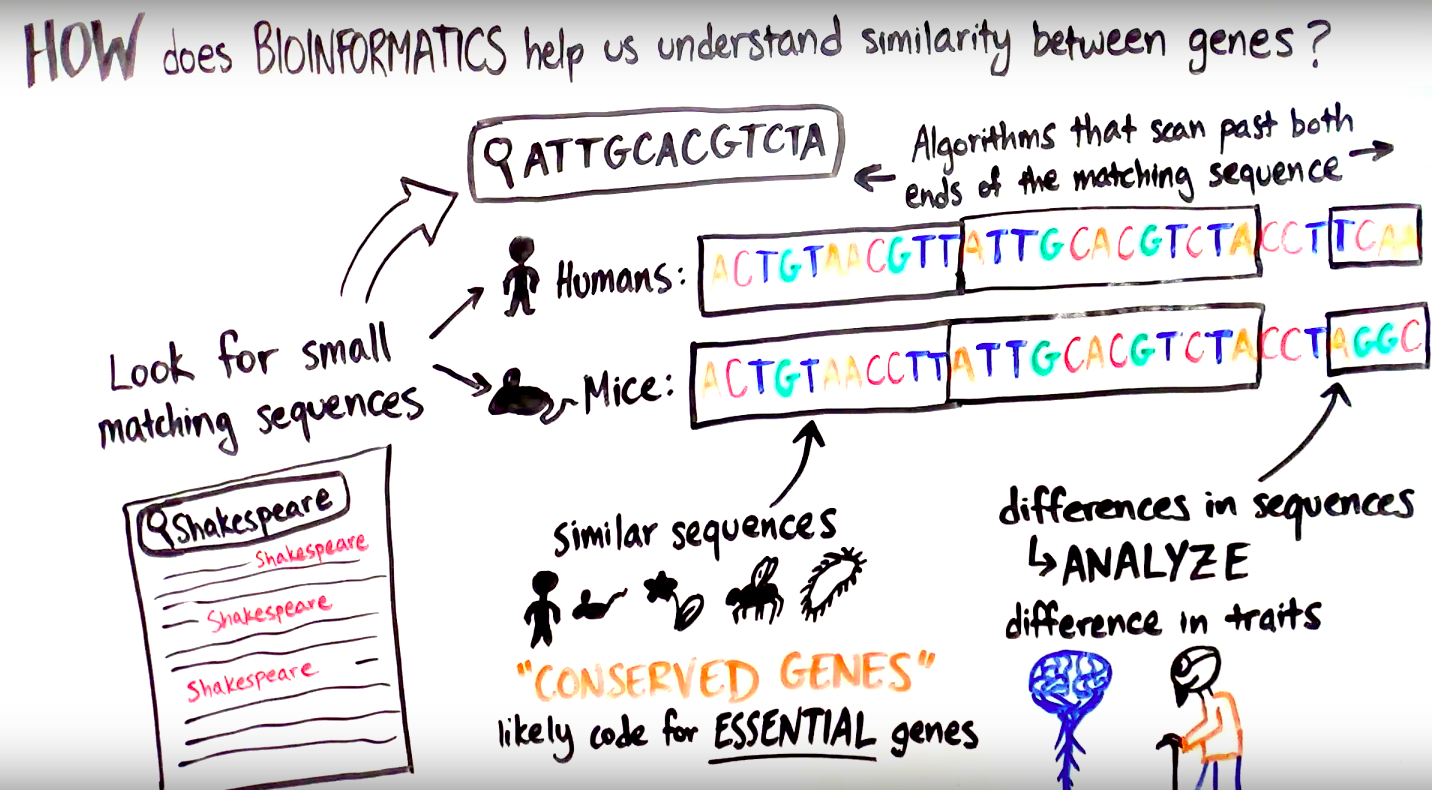 HOW does BIOINFORMATICS help us understand similarity between genes?
ATTGCACGTCTA
Algorithms that scan past both
ends of the matching sequence
Humans: ACTGTAACGTTATTGCACGTCTACCTTCAA
Mice: ACTGTAACCTTATTGCACGTCTACCTAGGC
Look for small
matching sequences
Shakespeare
Shakespeare
Shakespeare
Shakespeare
similar sequences
"CONSERVED GENES"
likely code for ESSENTIAL genes
differences in sequences
ANALYZE
difference in traits